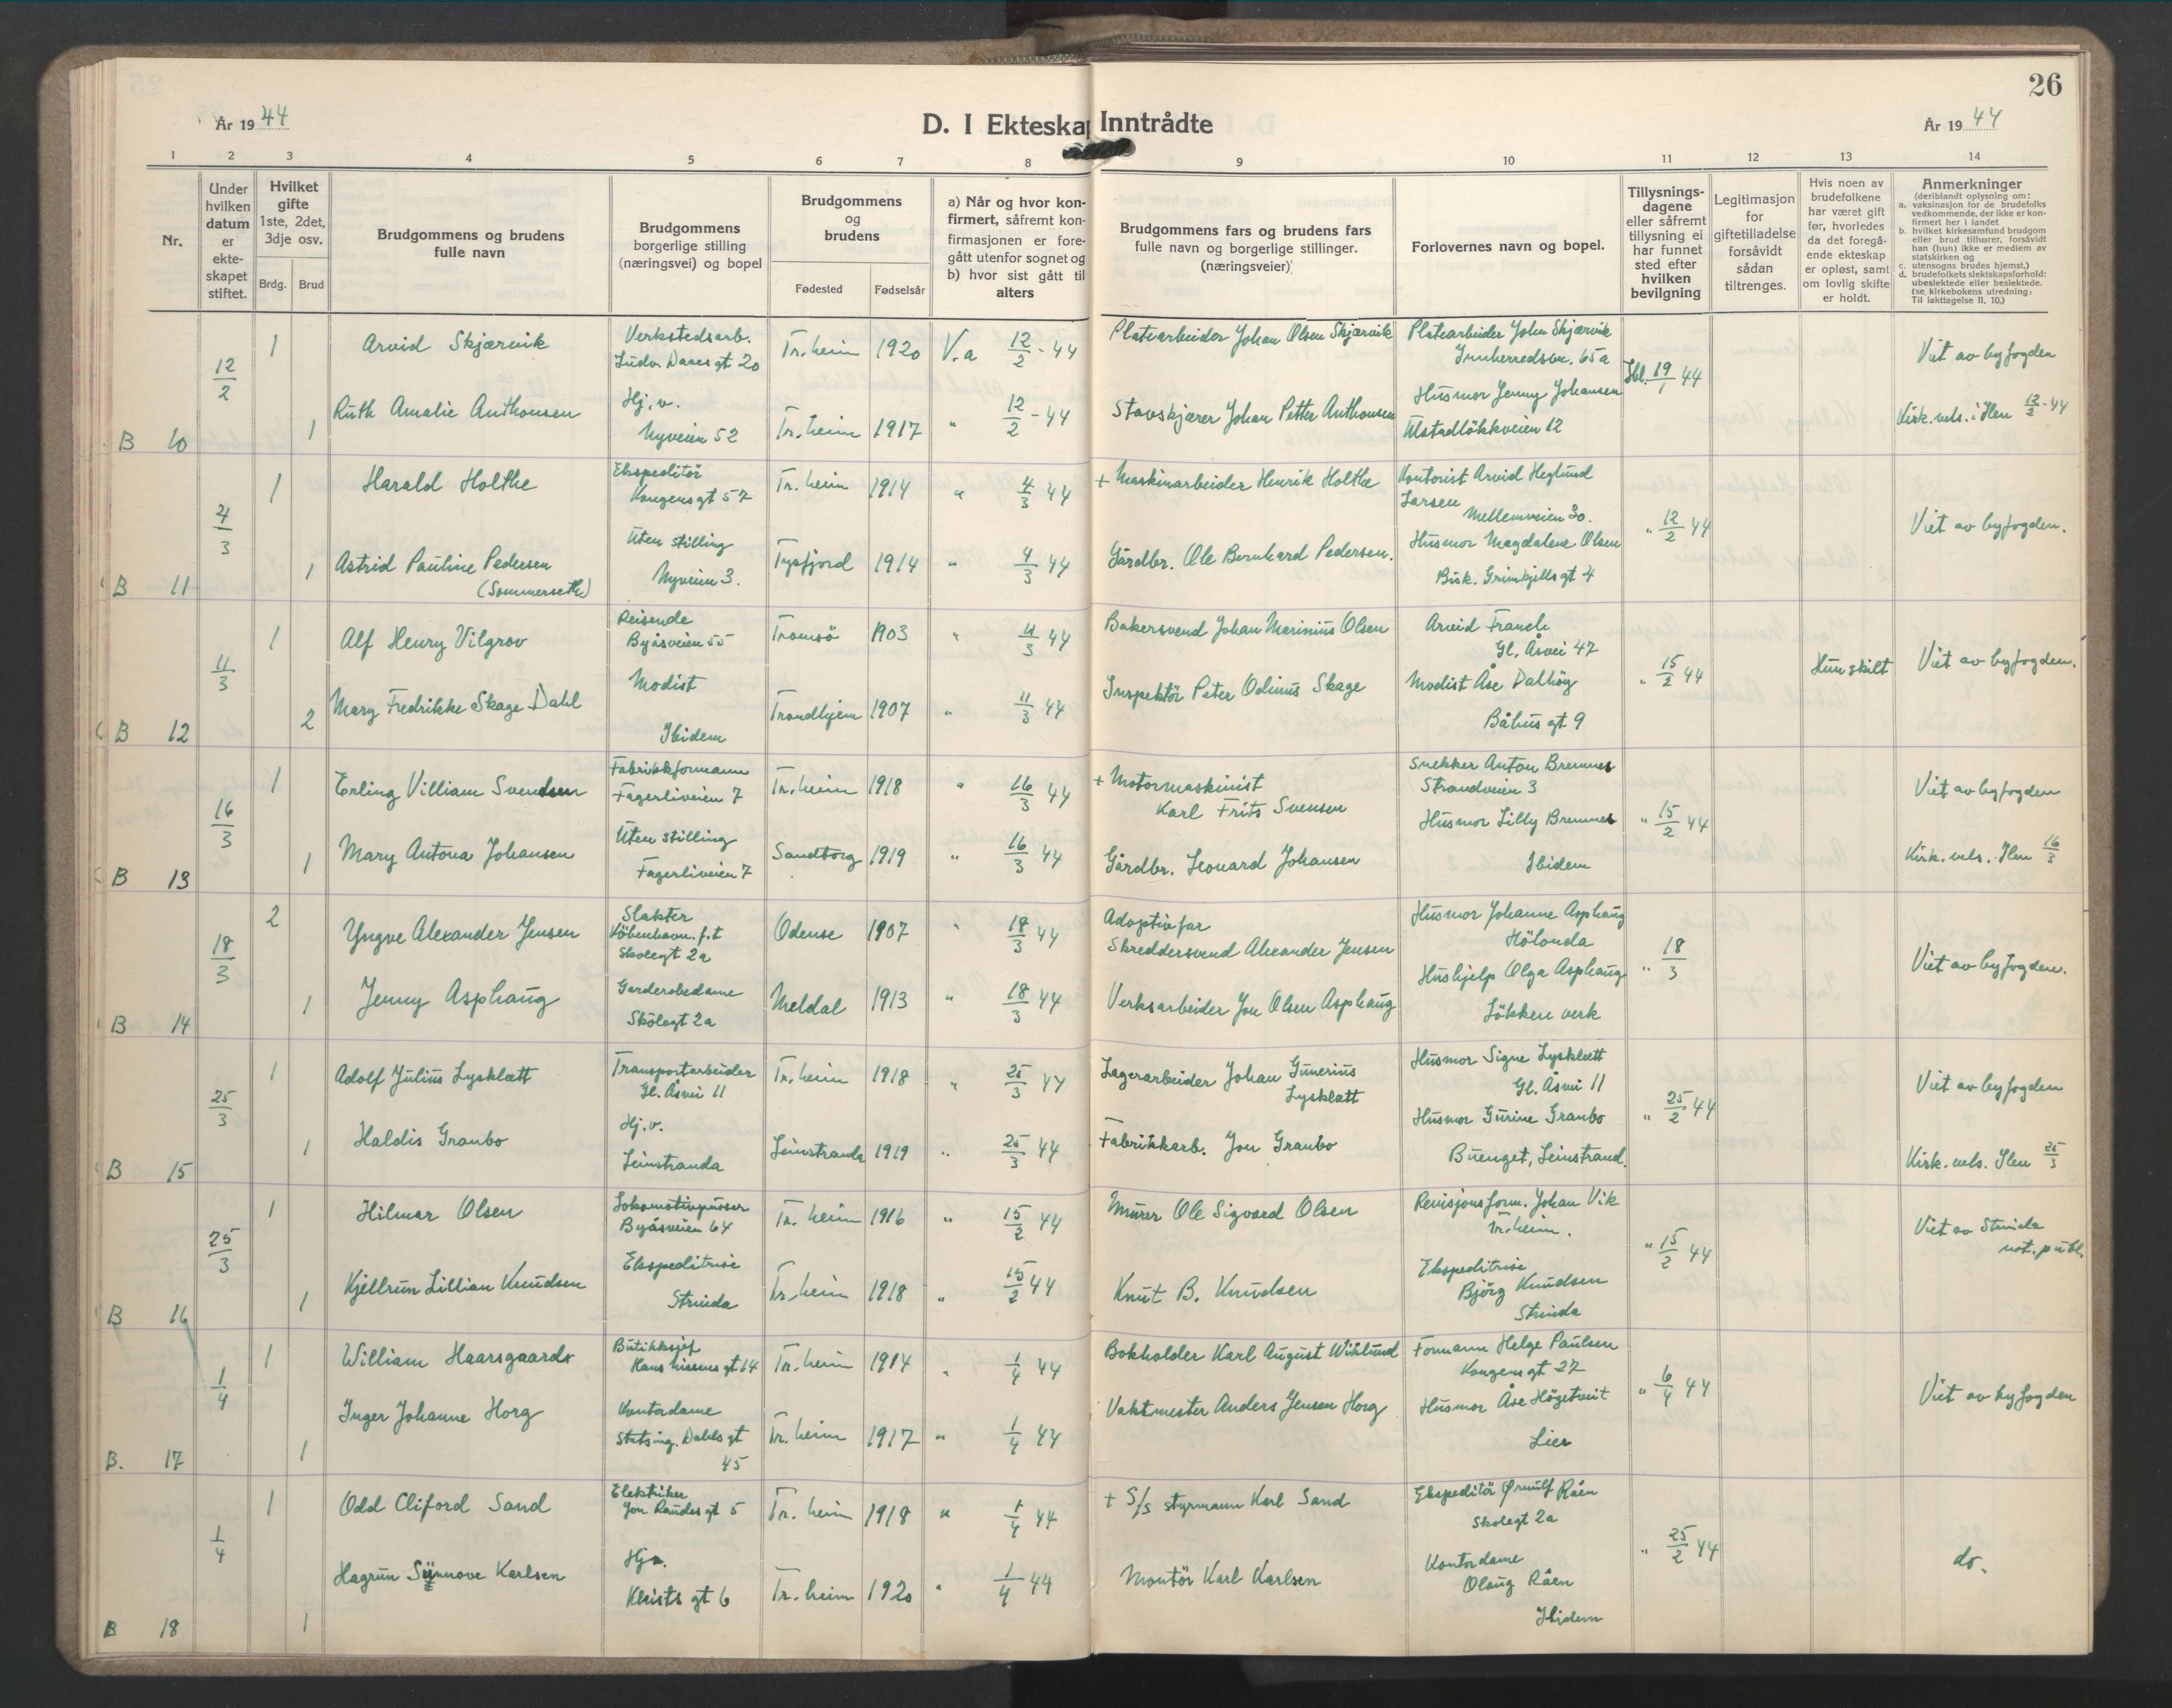 26
År 1944
D. I Ekteskap Inntrådte
År 1944
1 2 3 4 5 6 7 8 9 10 11 12 13 14
Nr.
Under hvilken datum er ekte-skapet stiftet.
Hvilket gifte 1ste, 2det, 3dje osv.
Brdg. Brud
Brudgommens og brudens fulle navn
Brudgommens borgerlige stilling (næringsvei) og bopel
Brudgommens og brudens
Fødested Fødselsår
a) Når og hvor kon-firmert, såfremt kon-firmasjonen er fore-gått utenfor sognet og
b) hvor sist gått til alters
Brudgommens fars og brudens fars fulle navn og borgerlige stillinger. (næringsveier)
Forlovernes navn og bopel.
Tillysnings-dagene eller såfremt tillysning ei har funnet sted efter hvilken bevilgning
Legitimasjon for giftetilladelse forsåvidt sådan tiltrenges.
Hvis noen av brudefolkene har været gift før, hvorledes da det foregå-ende ekteskap er opløst, samt om lovlig skifte er holdt.
Anmerkninger
(deriblandt oplysning om:
a. vaksinasjon for de brudefolks vedkommende, der ikke er kon-firmert her i landet
b. hvilket kirkesamfund brudgom eller brud tilhører, forsåvidt han (hun) ikke er medlem av statskirken og
c. utensogns brudes hjemst.)
d. brudefolkets slektskapsforhold: ubeslektede eller beslektede.
(se kirkebokens utredning: Til iakttagelse II, 10.)
B 10
12/2
1 Arvid Skjærvik
Verkstedsarb.
Ludv. Daaes gt 20
Tr.heim 1920 V.a 12/2-44
Platearbeider Johan Olsen Skjærvik
Platearbeider John Skjærvik
Innherredsvn. 65a
19/1 44
Viet av byfogden
1 Ruth Amalie Anthonsen
Hj.v.
Nyveien 52
Tr.heim 1917 " 12/2-44
Stavskjærer Johan Petter Anthonsen
Husmor Jenny Johansen
Ulstadløkkveien 12
Kirk. vels. i Ilen 12/2-44
B 11
4/3
1 Harald Holthe
Ekspeditör
Kongensgt 57
Tr.heim 1914 " 4/3 44
+ Maskinarbeider Henrik Holthe
Kontorist Arvid Heglund
Larsen
Mellemveien 30.
" 12/2 44
Viet av byfogden.
1 Astrid Pauline Pedersen
(Sommerseth)
Uten stilling
Nyveien 3.
Tysfjord 1914 " 4/3 44
Gårdbr. Ole Bernhard Pedersen.
Husmor Magdalene Olsen
Bisk. Grimkjells gt 4
B 12
11/3
1 Alf Henry Vilgrov
Reisende
Byåsveien 55
Tromsö 1903 " 11/3 44
Bakersvend Johan Marinius Olsen
Arvid Franck
Gl. Åsvei 47
" 15/2 44
Hun skilt
Viet av byfogden.
2 Mary Fredrikke Skage Dahl
Modist
Ibidem
Trondhjem 1907 " 11/3 44
Inspektör Peter Odinus Skage
Modist Åse Dalhög
Båhus gt 9
B 13
16/3
1 Erling Villiam Svendsen
Fabrikkformann
Fagerliveien 7
Tr.heim 1918 " 16/3 44
+ Motormaskinist
Karl Frits Svensen
Snekker Anton Bremnes
Strandveien 3
" 15/2 44
Viet av byfogden
1 Mary Antona Johansen
Uten stilling
Fagerliveien 7
Sandtorg 1919 " 16/3 44
Gårdbr. Leonard Johansen
Husmor Lilly Bremnes
Ibidem
Kirk. vels. Ilen 16/3
B 14
18/3
2 Yngve Alexander Jensen
Slakter
Köbenhavn. f.t
Skolegt 2a
Odense 1907 " 18/3 44
Adoptivfar
Skreddersvend Alexander Jensen
Husmor Johanne Asphaug
Hölonda
" 18/3
Viet av byfogden.
1 Jenny Asphaug
Garderobedame
Skolegt 2a
Meldal 1913 " 18/3 44
Verksarbeider Jon Olsen Asphaug
Hushjelp Olga Asphaug
Lökken verk
B 15
25/3
1 Adolf Julius Lysklætt
Transportarbeider
Gl. Åsvei 11
Tr.heim 1918 " 25/3 44
Lagerarbeider Johan Gunerius
Lysklætt
Husmor Signe Lysklett
Gl. Åsvei 11
" 25/2 44
Viet av byfogden
1 Haldis Granbo
Hj.v.
Leinstranda
Leinstranda 1919 " 25/3 44
Fabrikkarb. Jon Granbo
Husmor Gurine Granbo
Buenget, Leinstrand.
Kirk. vels. Ilen 25/3
B 16
25/3
1 Hilmar Olsen
Lokomotivpusser
Byåsveien 64
Tr. heim 1916 " 15/2 44
Murer Ole Sigvard Olsen
Revisjonsform. Johan Vik
Tr.heim.
" 15/2 44
Viet av Strinda
not. publ.
1 Kjellrun Lillian Knudsen
Ekspeditrise
Strinda
Tr.heim 1918 " 15/2 44
Knut B. Knudsen
Ekspeditrise
Bjørg Knudsen
Strinda
B. 17
1/4
1 William Haarsgaards
Butikksjef
Hans Nissens gt 14
Tr.heim 1914 " 1/4 44
Bokholder Karl August Wiklund
Formann Helge Paulsen
Kongensgt 27
" 6/4 44
Viet av byfogden
1 Inger Johanne Horg
Kontordame
Statsing. Dahls gt
45
Tr.heim 1917 " 1/4 44
Vaktmester Anders Jensen Horg
Husmor Åse Høgetveit
Lier
B 18
1/4
1 Odd Cliford Sand
Elektriker
Jon Raudes gt 5
Tr. heim 1918 " 1/4 44
+ S/s styrmann Karl Sand
Ekspeditör Ørnulf Råen
Skolegt 2a
" 25/2 44
do.
1 Hagrun Synnove Karlsen
Hj.
Klists gt 6
Tr.heim 1920 " 1/4 44
Montör Karl Karlsen
Kontordame
Olaug Råen
Ibidem